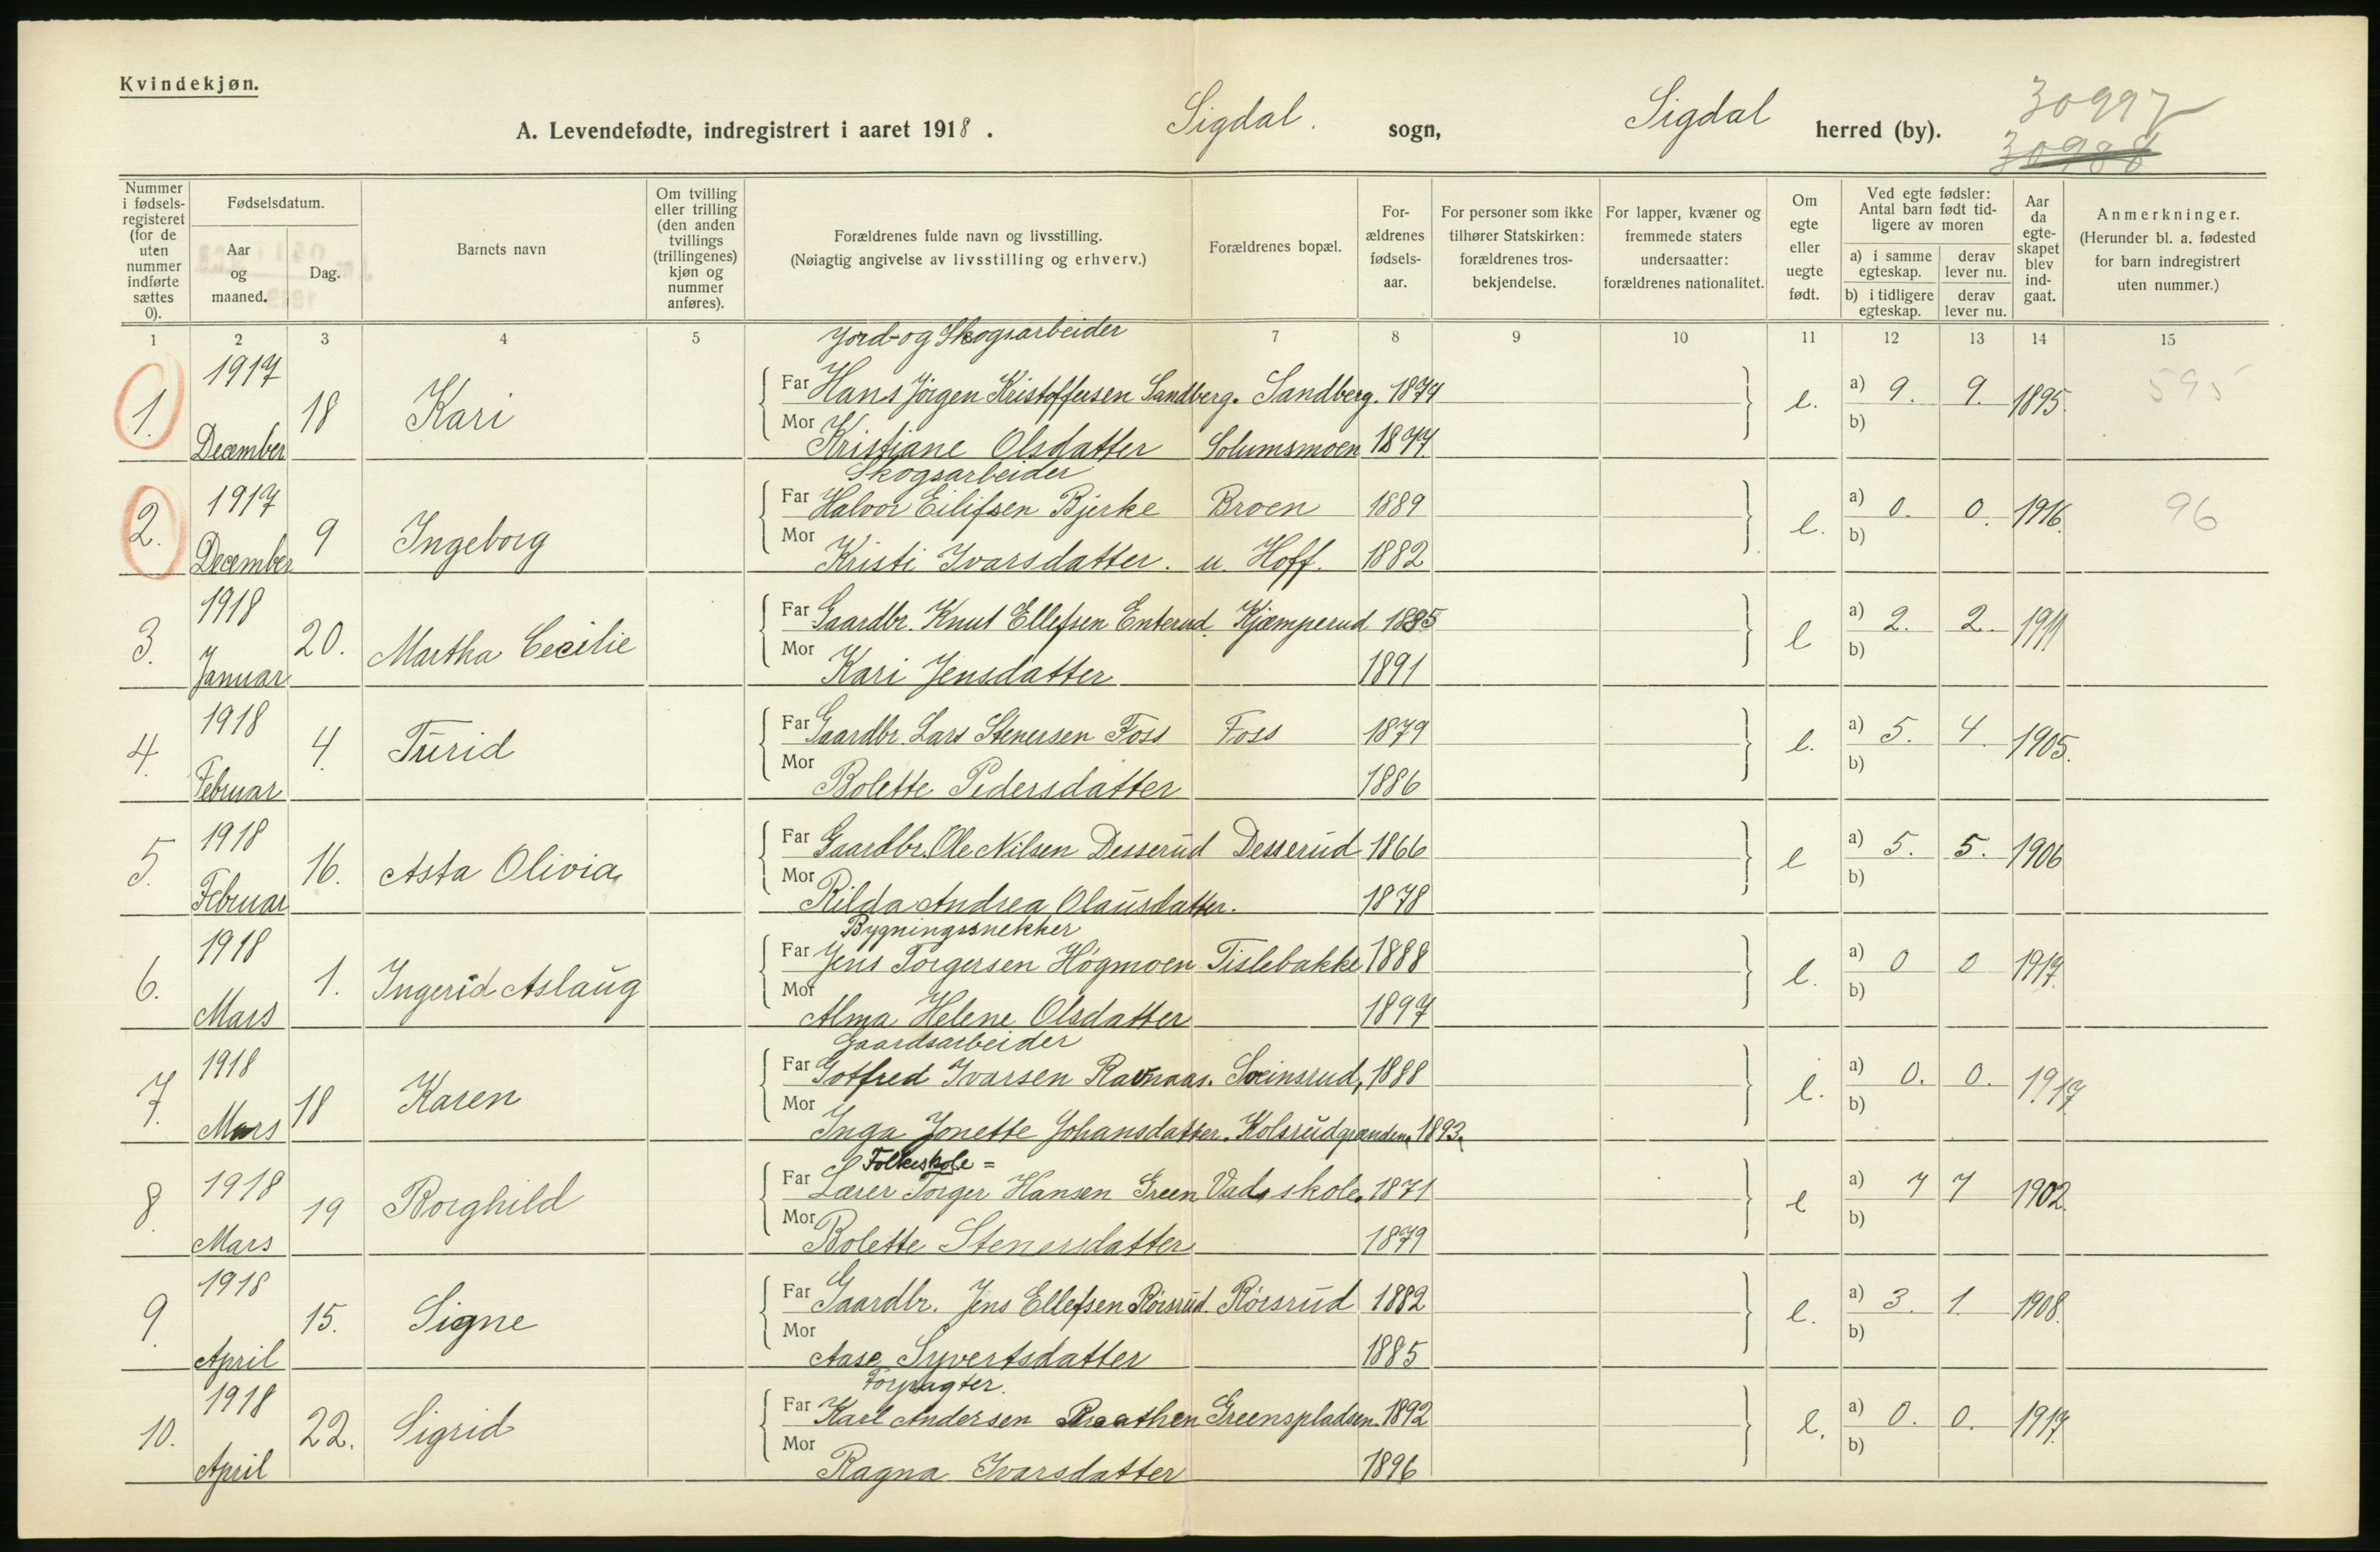 Kvindekjøn.
A. Levendefødte, indregistrert i aaret 1918. Sigdal. sogn, Sigdal herred (by). 30997
30988
Nummer i fødsels-registeret (for de uten nummer indførte sættes 0).
Fødselsdatum.
Aar og maaned.
Dag.
Barnets navn
Om tvilling eller trilling (den anden tvillings (trillingenes) kjøn og nummer anføres).
Forældrenes fulde navn og livsstilling.
(Nøiagtig angivelse av livsstilling og erhverv.)
Forældrenes bopæl.
For-ældrenes fødsels-aar.
For personer som ikke tilhører Statskirken: forældrenes tros-bekjendelse.
For lapper, kvæner og fremmede staters undersaatter: forældrenes nationalitet.
Om egte eller uegte født.
Ved egte fødsler: Antal barn født tid-ligere av moren
a) i samme egteskap. derav lever nu.
b) i tidligere egteskap. derav lever nu.
Aar da egte-skapet blev ind-gaat.
Anmerkninger.
(Herunder bl. a. fødested for barn indregistrert uten nummer.)
1 2 3 4 5 7 8 9 10 11 12 13 14 15
Jord- og Skogsarbeider
1. 1917 December 18 Kari Far Hans Jörgen Kristoffersen Sandberg. Sandberg. 1874 e. a) 9. 9. 1895. 595
Mor Kristiane Olsdatter Solumsmoen 1877 b)
Skogsarbeider
2. 1917 December 9 Ingeborg Far Halvor Eilifsen Bjerke Broen 1889 e. a) 0. 0. 1916. 96
Mor Kristi Ivarsdatter. u. Hoff. 1882 b)
3. 1918 Januar 20. Martha Cecilie Far Gaardbr. Knut Ellefsen Enterud. Kjæmperud 1885 e a) 2. 2. 1911
Mor Kari Jensdatter 1891 b)
4. 1918 Februar 4. Turid Far Gaardbr. Lars Stenersen Foss Foss 1879 e. a) 5. 4. 1905.
Mor Bolette Pedersdatter 1886 b)
5. 1918 Februar 16. Asta Olivia. Far Gaardbr. Ole Nilsen Desserud Desserud 1866 e a) 5. 5. 1906
Mor Rilda Andrea Olausdatter. 1878 b)
Bygningssnekker
6. 1918 Mars 1. Ingerid Aslaug Far Jens Torgersen Högmoen Tislebakke 1888 e. a) 0 0 1917.
Mor Alma Helene Olsdatter 1897 b)
Gaardsarbeider
7. 1918 Mars 18 Karen Far Gotfred Ivarsen Ravnaas. Sveinsrud, 1888 e. a) 0. 0. 1917
Mor Inga Jonette Johansdatter. Kolsrudgranden. 1893. b)
Folkeskole =
8. 1918 Mars 19 Borghild Far Lærer Torger Hansen Green Vads skole. 1871 e a) 7 7 1902.
Mor Bolette Stenersdatter 1879 b)
9. 1918 April 15. Signe Far Gaardbr. Jens Ellefsen Rörsrud. Rörsrud 1882 e. a) 3. 1. 1908.
Mor Aase Syvertsdatter 1885 b)
Forpagter.
10. 1918 April 22. Sigrid Far Karl Andersen Braathen Greenspladsen. 1892 e. a) 0. 0. 1917.
Mor Ragna Ivarsdatter 1896 b)